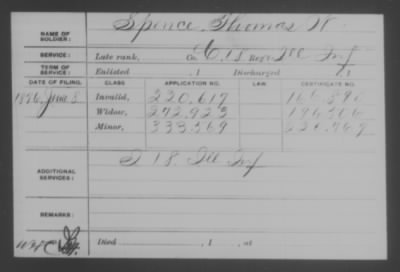 NAME OF SOLDIER: Spence, Thomas W.
SERVICE: Late rank, Co. C 18 Reg't Ill Inf
TERM OF SERVICE: Enlisted , 1 Discharged , 1
DATE OF FILING. CLASS. APPLICATION NO. LAW. CERTIFICATE NO.
1876, June 8. Invalid, 220.617
Widow, 272.923
Minor, 333.369
ADDITIONAL SERVICES: I 18 Ill Inf
REMARKS:
Died , 1 , at